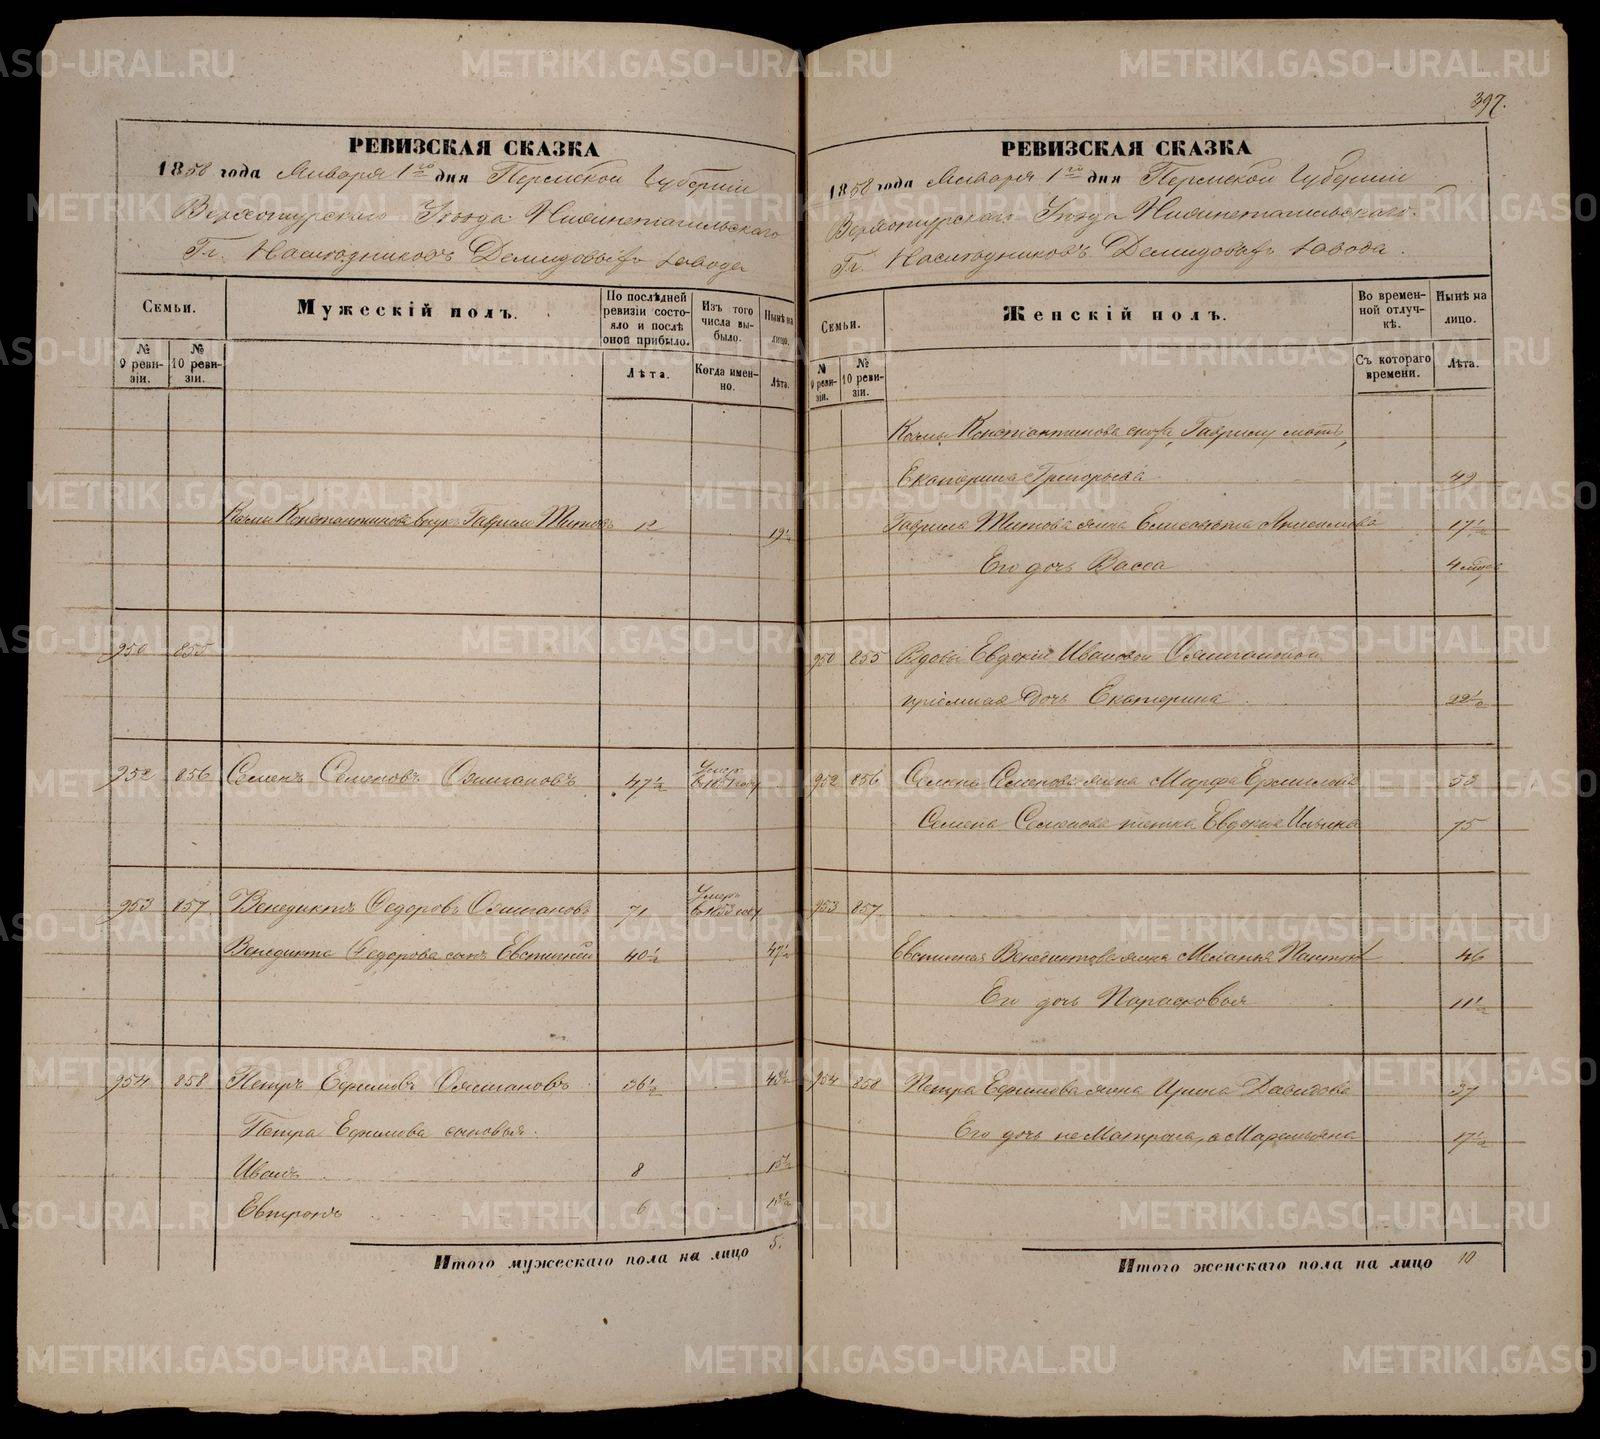 397.
РЕВИЗСКАЯ СКАЗКА
1858 года Января 1го дня Пермской Губерніи
Верхотурскаго Уѣзда Нижнетагильскаго
Гг. Наслѣдниковъ Демидовыхъ завода
Семьи.
№ 9 ревизіи.
№ 10 ревизіи.
Мужескій полъ.
По послѣдней ревизіи состояло и послѣ оной прибыло.
Лѣта.
Изъ того числа выбыло.
Когда именно.
Нынѣ на лицо.
Лѣта.
Козмы Константинова внукъ Гаврила Титовъ 12 19½
950 855
952 856 Семенъ Семеновъ 47½ Умеръ въ году
953 857 Венедиктъ Федоровъ 71 Умеръ въ 1853 году
Венедикта Федорова сынъ Евстигней 40½ 47½
954 858 Петръ Ефимовъ 36½ 43½
Петра Ефимова сыновья.
Иванъ 8 15½
6 13½
Итого мужескаго пола на лицо 5.
РЕВИЗСКАЯ СКАЗКА
1858 года Января 1го дня Пермской Губерніи
Верхотурскаго Уѣзда Нижнетагильскаго
Гг. Наслѣдниковъ Демидовыхъ завода.
Семьи.
№ 9 ревизіи.
№ 10 ревизіи.
Женскій полъ.
Во временной отлучкѣ.
Съ котораго времени.
Нынѣ на лицо.
Лѣта.
Козмы Константинова сноха, Гаврилы мать,
Екатерина Григорьева 49
Гаврила Титова жена Елисавета 17½
Его дочь Васса 4 мѣсяца
950 855 Вдовы Евдокіи Ивановой
пріемная дочь Екатерина 22½
952 856 Семена Семенова жена Марфа 53
Семена Семенова тетка Евдокия Ильина 75
953 857
Евстигнея Венедиктова жена Меланья 46
Его дочь Парасковья 11½
954 858 Петра Ефимова жена Ирина Давидова 37
Его дочь не Матрена, а Маремьяна 17½
Итого женскаго пола на лицо 10
METRIKI.GASO-URAL.RU